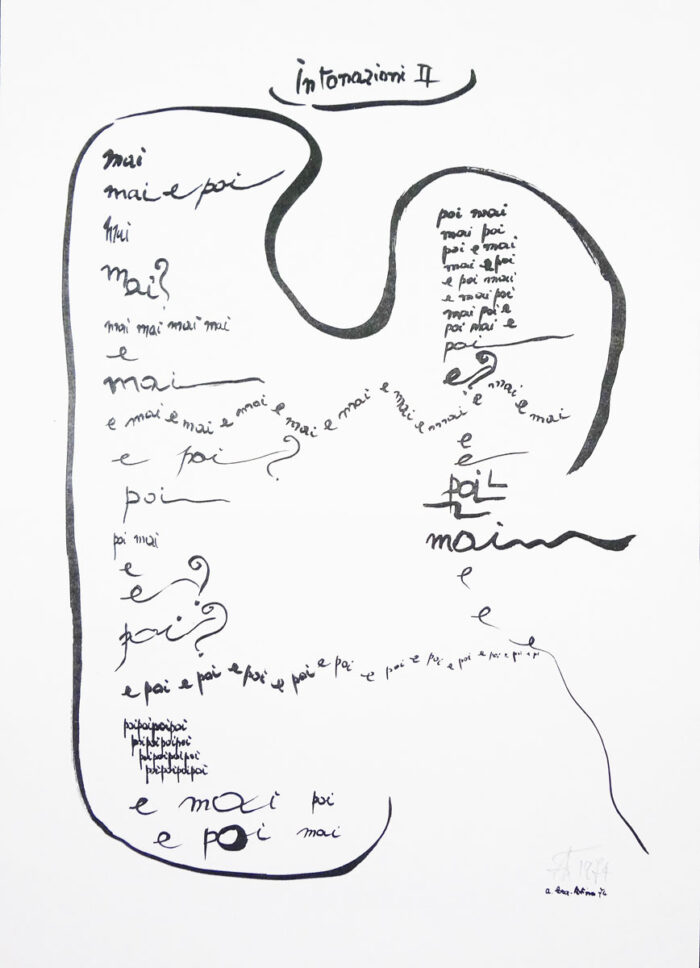 Intonazioni II
mai
mai e poi
mai
mai?
mai mai mai mai
e
mai
e mai e mai e mai e mai e mai e mai e mai e mai e mai
e poi?
poi
poi mai
e
e?
poi?
e poi e poi e poi e poi e poi e poi e poi e poi e poi e p
poipoipoipoi
poipoipoipoi
poipoipoipoi
poipoipoipoi
e mai poi
e poi mai
poi mai
mai poi
poi e mai
mai e poi
e poi mai
e mai poi
mai poi e
poi mai e
poi
e?
e
e
poi
mai
e
e
e
1974